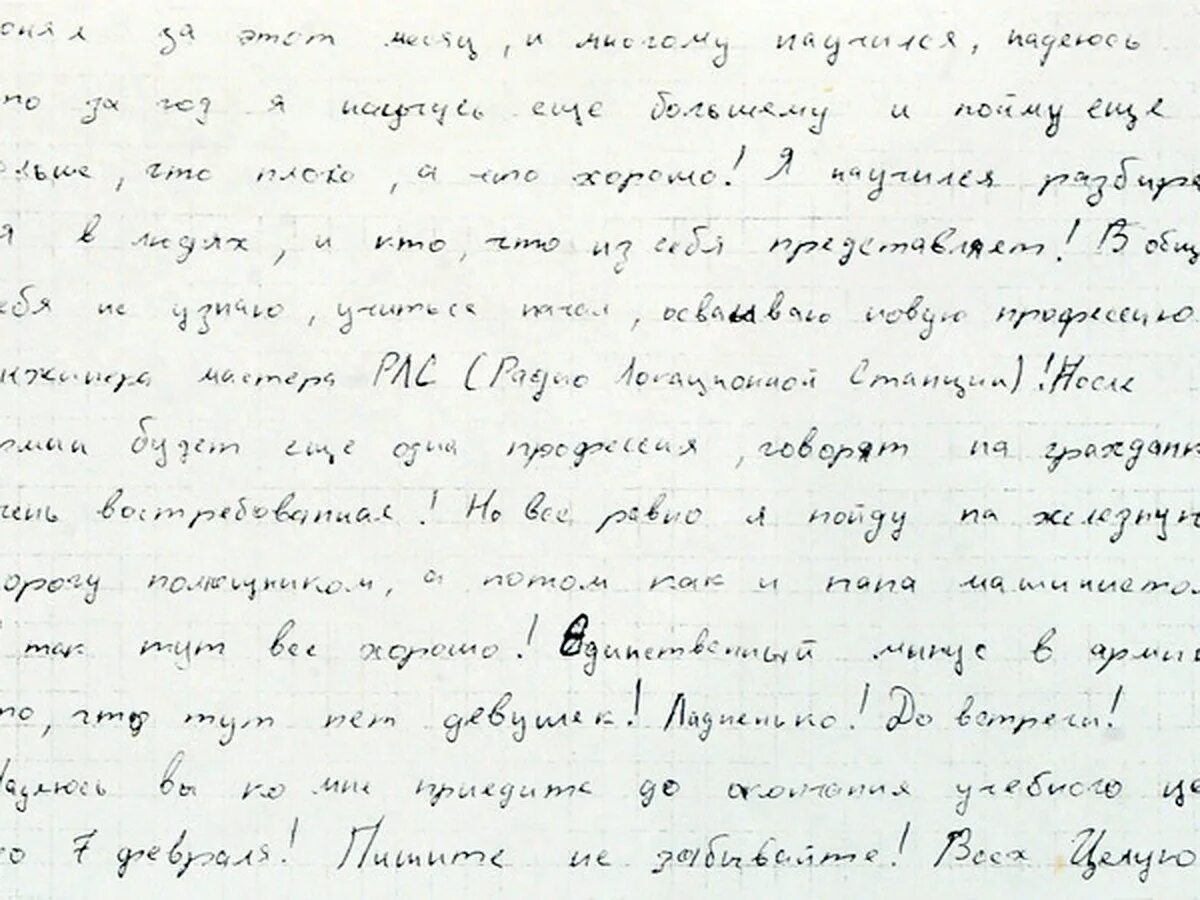 онял за этот месяц, и многому научился, надеюсь
то за год я научусь еще большему и пойму еще
ольше, что плохо, а что хорошо! Я научился разбира
я в людях, и кто, что из себя представляет! В общ
ебя не узнаю, учиться начал, осваиваю новую профессию
нжинера мастера РЛС (Радио Локационной Станции)! После
рмии будет еще одна профессия, говорят на гражданк
чень востребованная! Но все равно я пойду на железную
орогу помощником, а потом как и папа машинистом
так тут все хорошо! Единственный минус в армии
то, что тут нет девушек! Ладненько! До встречи!
Надеюсь вы ко мне приедите до окончания учебного це
го 7 февраля! Пишите не забывайте! Всех Целую